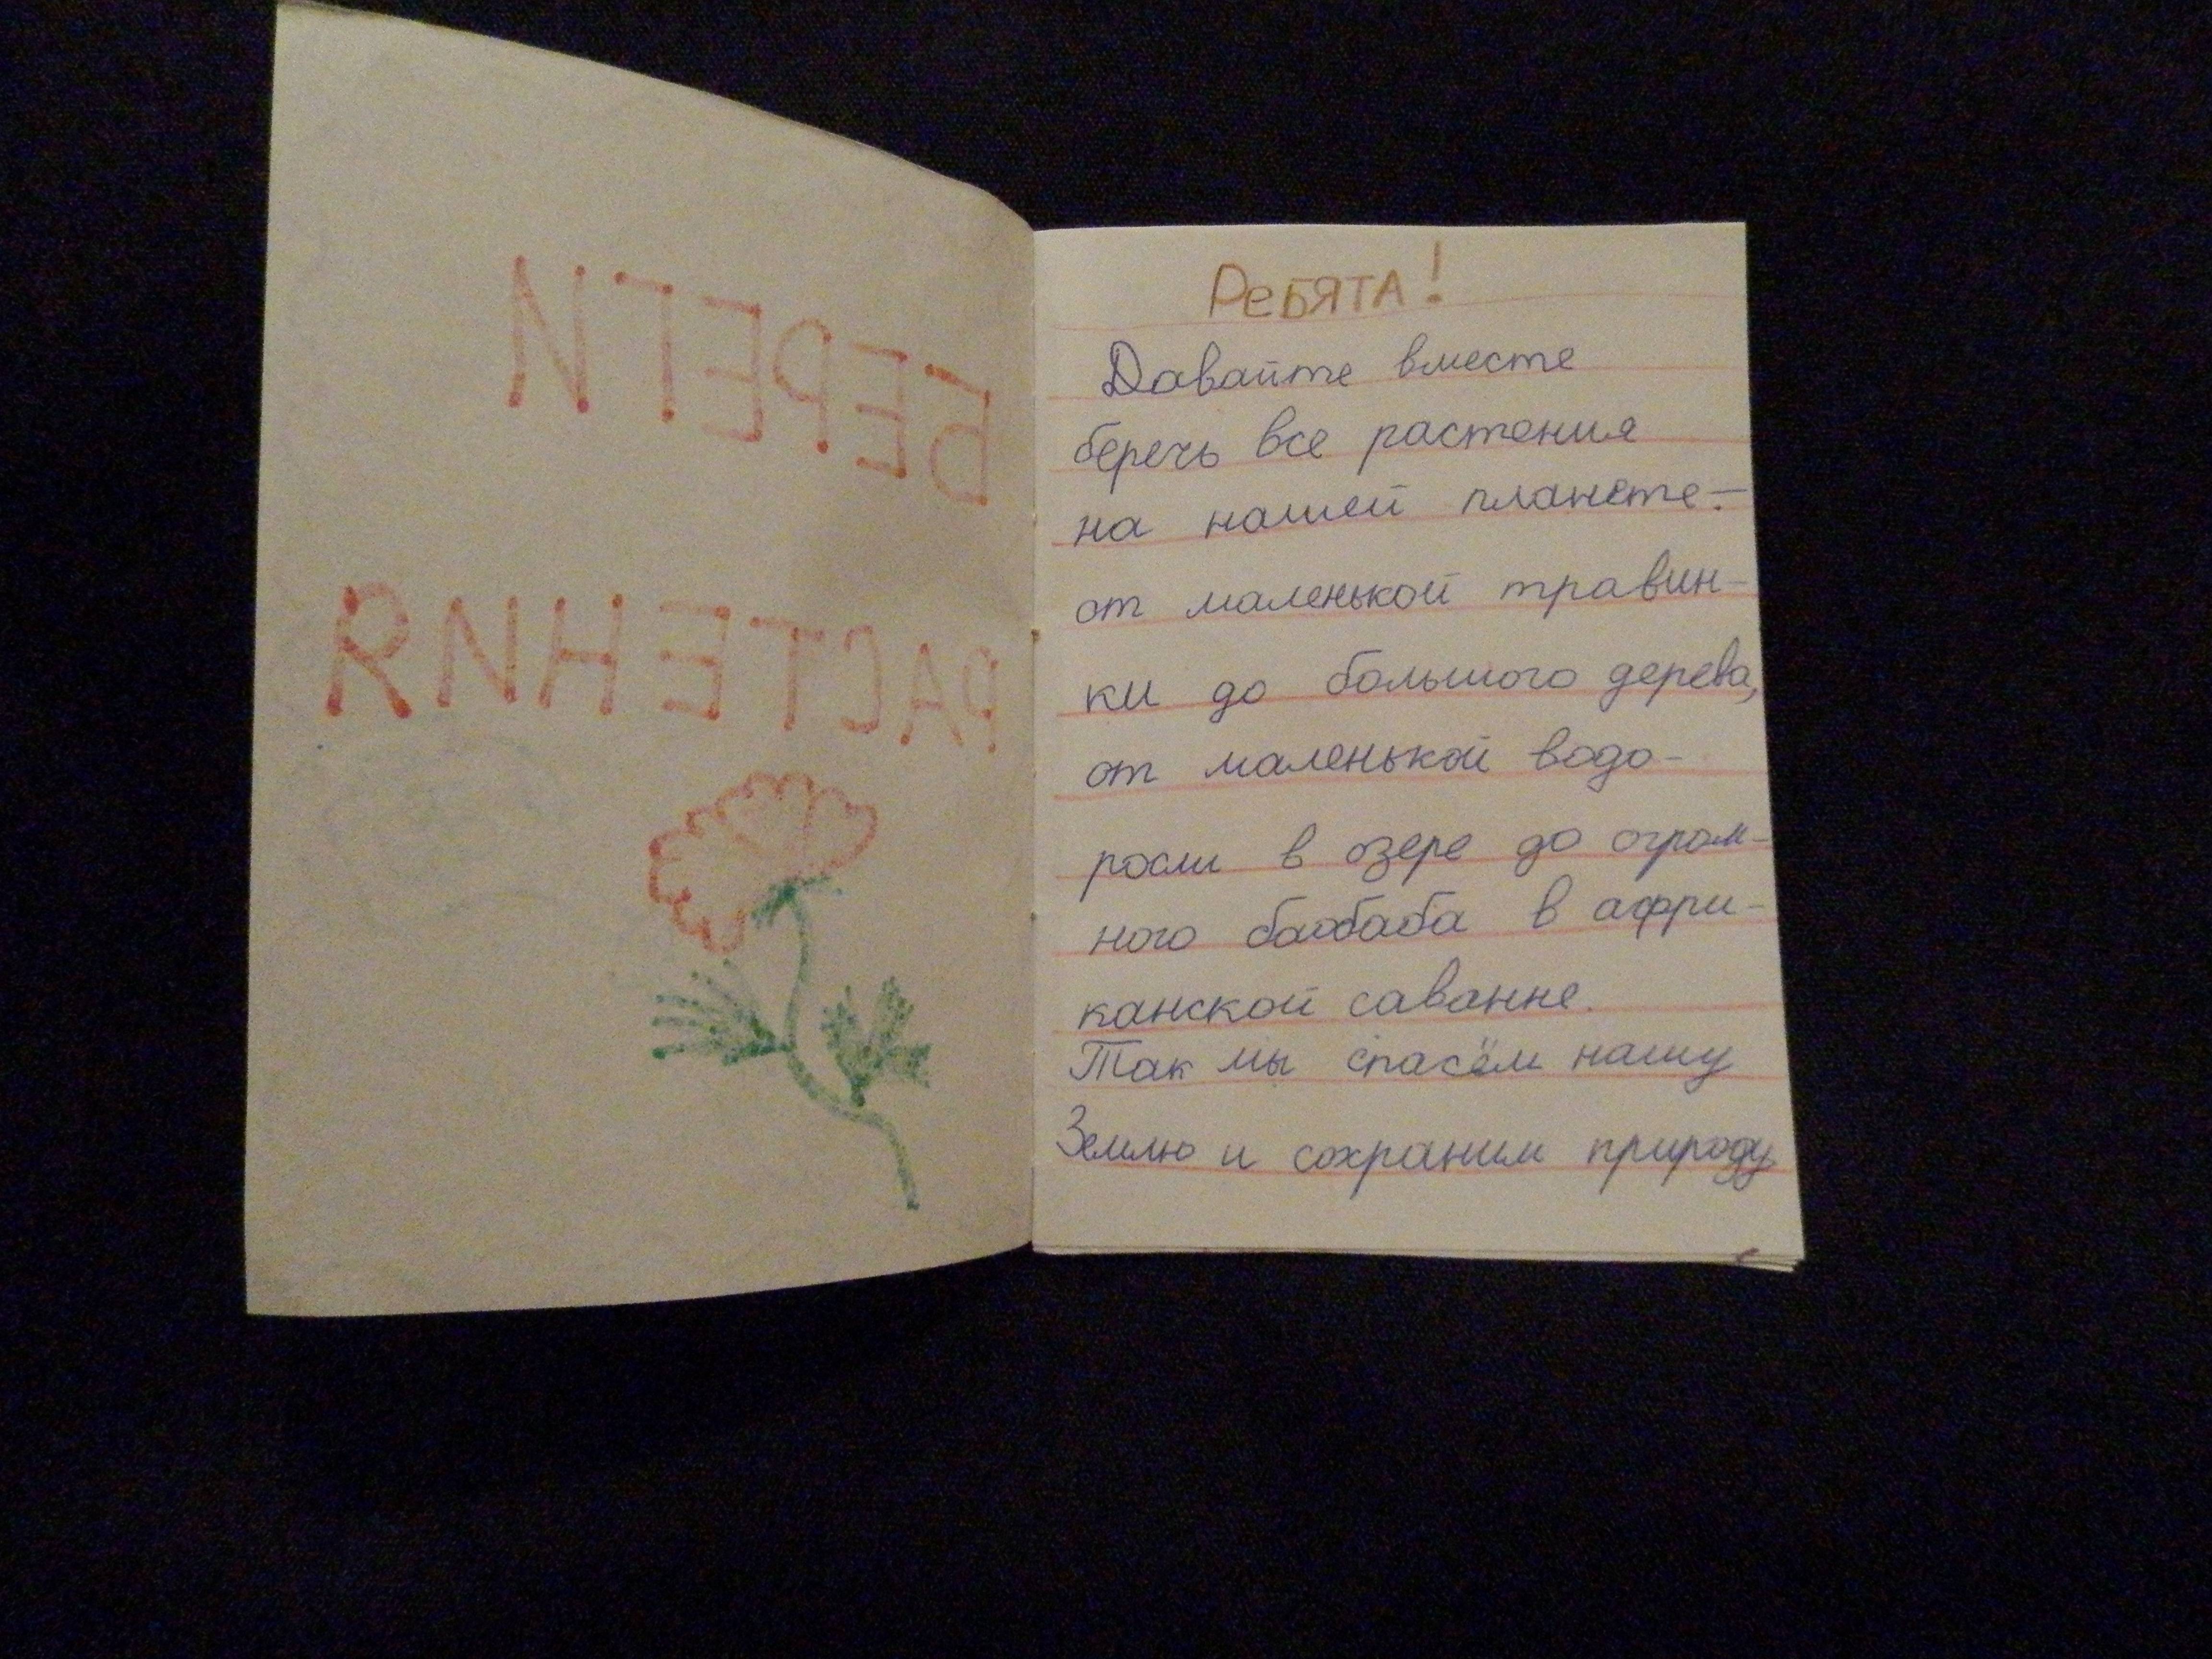 БЕРЕГИ
РАСТЕНИЯ
РеБЯТА!
Давайте вместе
беречь все растения
на нашей планете:-
от маленькой травин-
ки до большого дерева,
от маленькой водо-
росли в озере до огром-
ного баобаба в афри-
канской саванне.
Так мы спасём нашу
Землю и сохраним природу